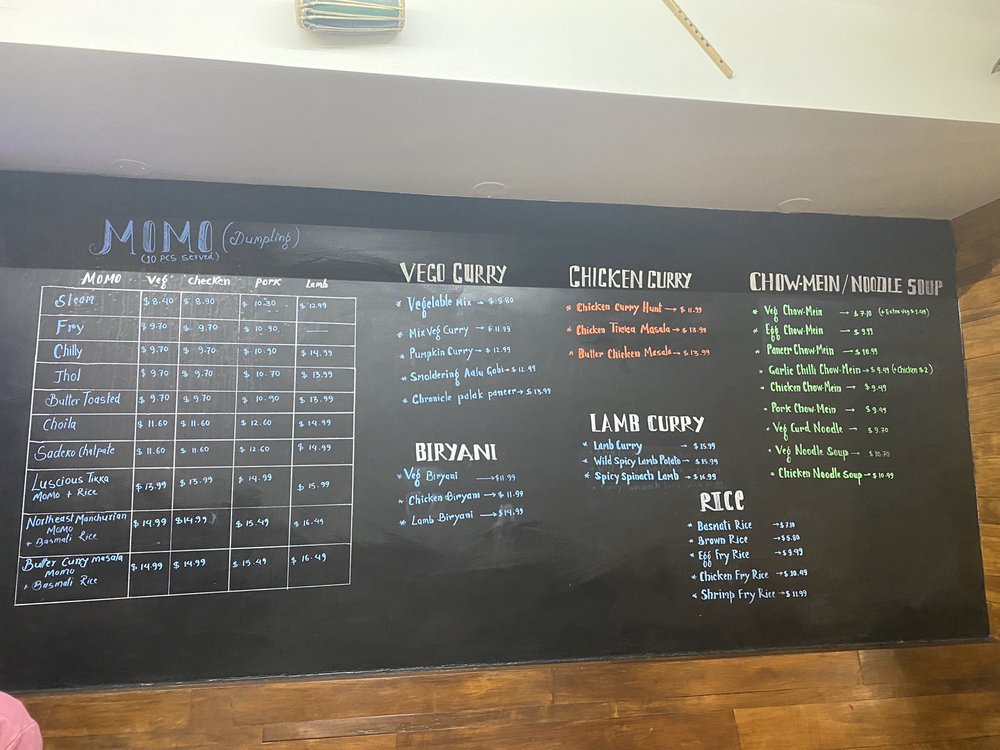 MOMO (Dumpling)
(10 PCS Served)
MOMO Veg chicken pork Lamb
Steam $8.40 $8.90 $10.30 $12.99
Fry $9.70 $9.70 $10.90 —
Chilly $9.70 $9.70 $10.90 $14.99
Jhol $9.70 $9.70 $10.70 $13.99
Butter Toasted $9.70 $9.70 $10.90 $13.99
Choila $11.60 $11.60 $12.60 $14.99
Sadeko Chatpate $11.60 $11.60 $12.60 $14.99
Luscious Tikka $13.99 $13.99 $14.99 $15.99
Momo + Rice
Northeast Manchurian $14.99 $14.99 $15.49 $16.49
Momo
+ Basmati Rice
Butter Curry Masala $14.99 $14.99 $15.49 $16.49
Momo
+ Basmati Rice
VEGO CURRY
* Vegetable Mix → $8.80
* Mix Veg Curry → $11.99
* Pumpkin Curry → $12.99
* Smoldering Aalu Gobi → $12.99
* Chronicle palak paneer → $13.99
BIRYANI
* Veg Biryani → $11.99
* Chicken Biryani → $11.99
* Lamb Biryani → $14.99
CHICKEN CURRY
* Chicken Curry Hunt → $11.99
* Chicken Tikka Masala → $13.99
* Butter Chicken Masala → $13.99
LAMB CURRY
* Lamb Curry → $15.99
* Wild Spicy Lamb Potato → $15.99
* Spicy Spinach Lamb → $16.99
RICE
* Basmati Rice →
* Brown Rice → $5.80
* Egg Fry Rice → $9.49
* Chicken Fry Rice → $10.49
* Shrimp Fry Rice → $11.99
CHOW-MEIN/NOODLE SOUP
* Veg Chow-Mein → (+ Extra veg
* Egg Chow-Mein → $9.99
* Paneer Chow-Mein → $10.99
* Garlic Chilli Chow-Mein → $9.99 (+Chicken $2)
* Chicken Chow-Mein → $9.49
* Pork Chow-Mein → $9.49
* Veg Curd Noodle → $9.70
* Veg Noodle Soup → $10.70
* Chicken Noodle Soup → $10.49